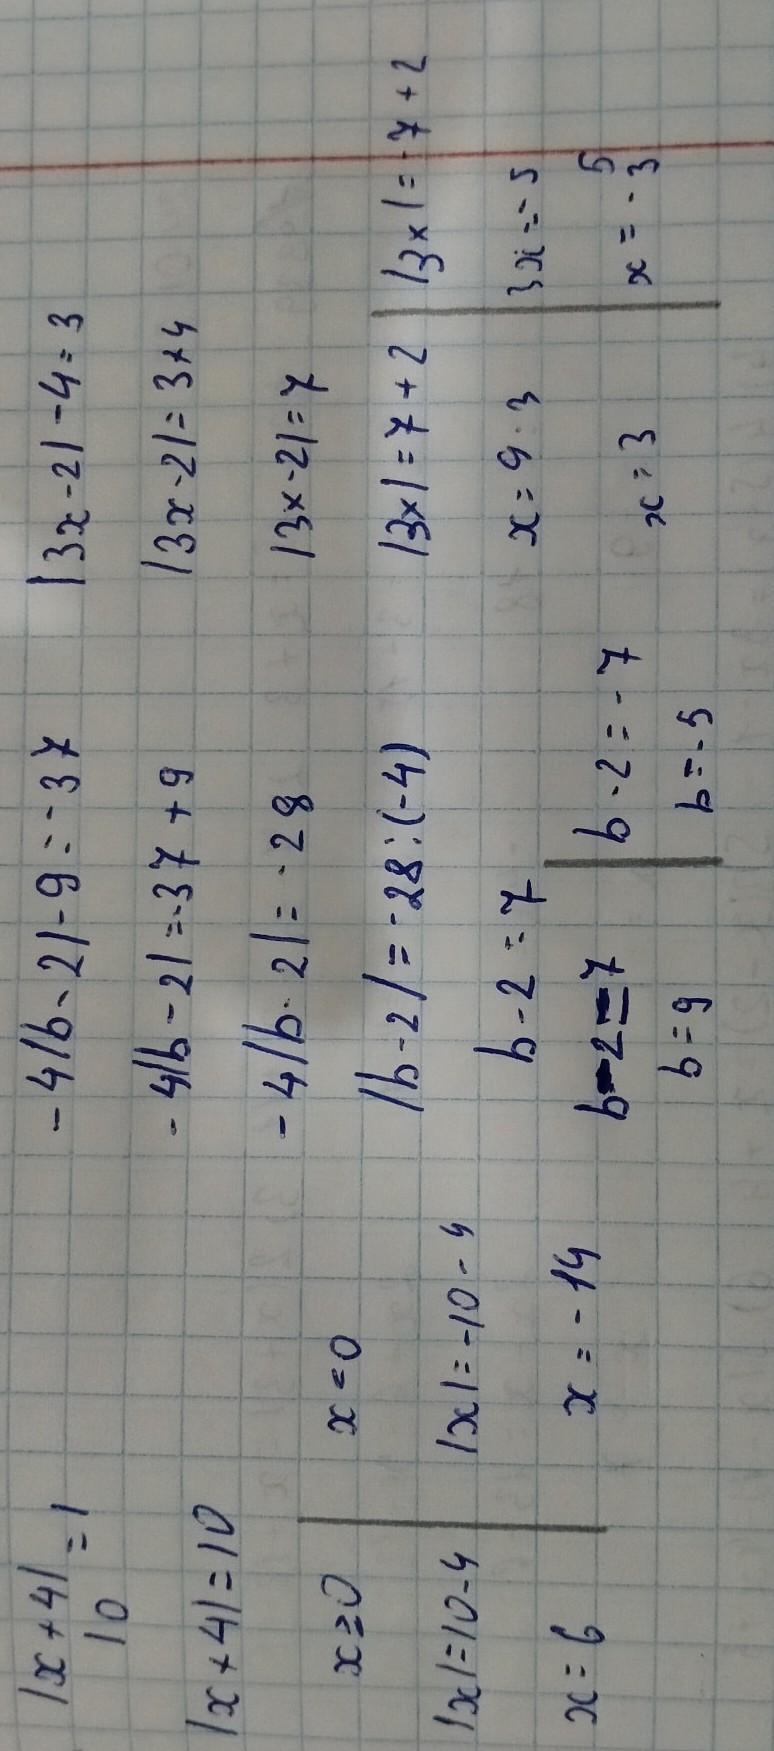 |x+4|
10 = 1
|x+4|=10
x≥0
x=0
|x|=10-4
|x|=-10-4
x=6
x=-14
-4|b-2|-9=-37
-4|b-2|=-37+9
-4|b-2|=-28
|b-2|=-28:(-4)
b-2=7
b-2=7
b-2=-7
b=9
b=-5
|3x-2|-4=3
|3x-2|=3+4
|3x-2|=7
|3x|=7+2
|3x|=-7+2
x=9:3
3x=-5
x=3
x=-5
3